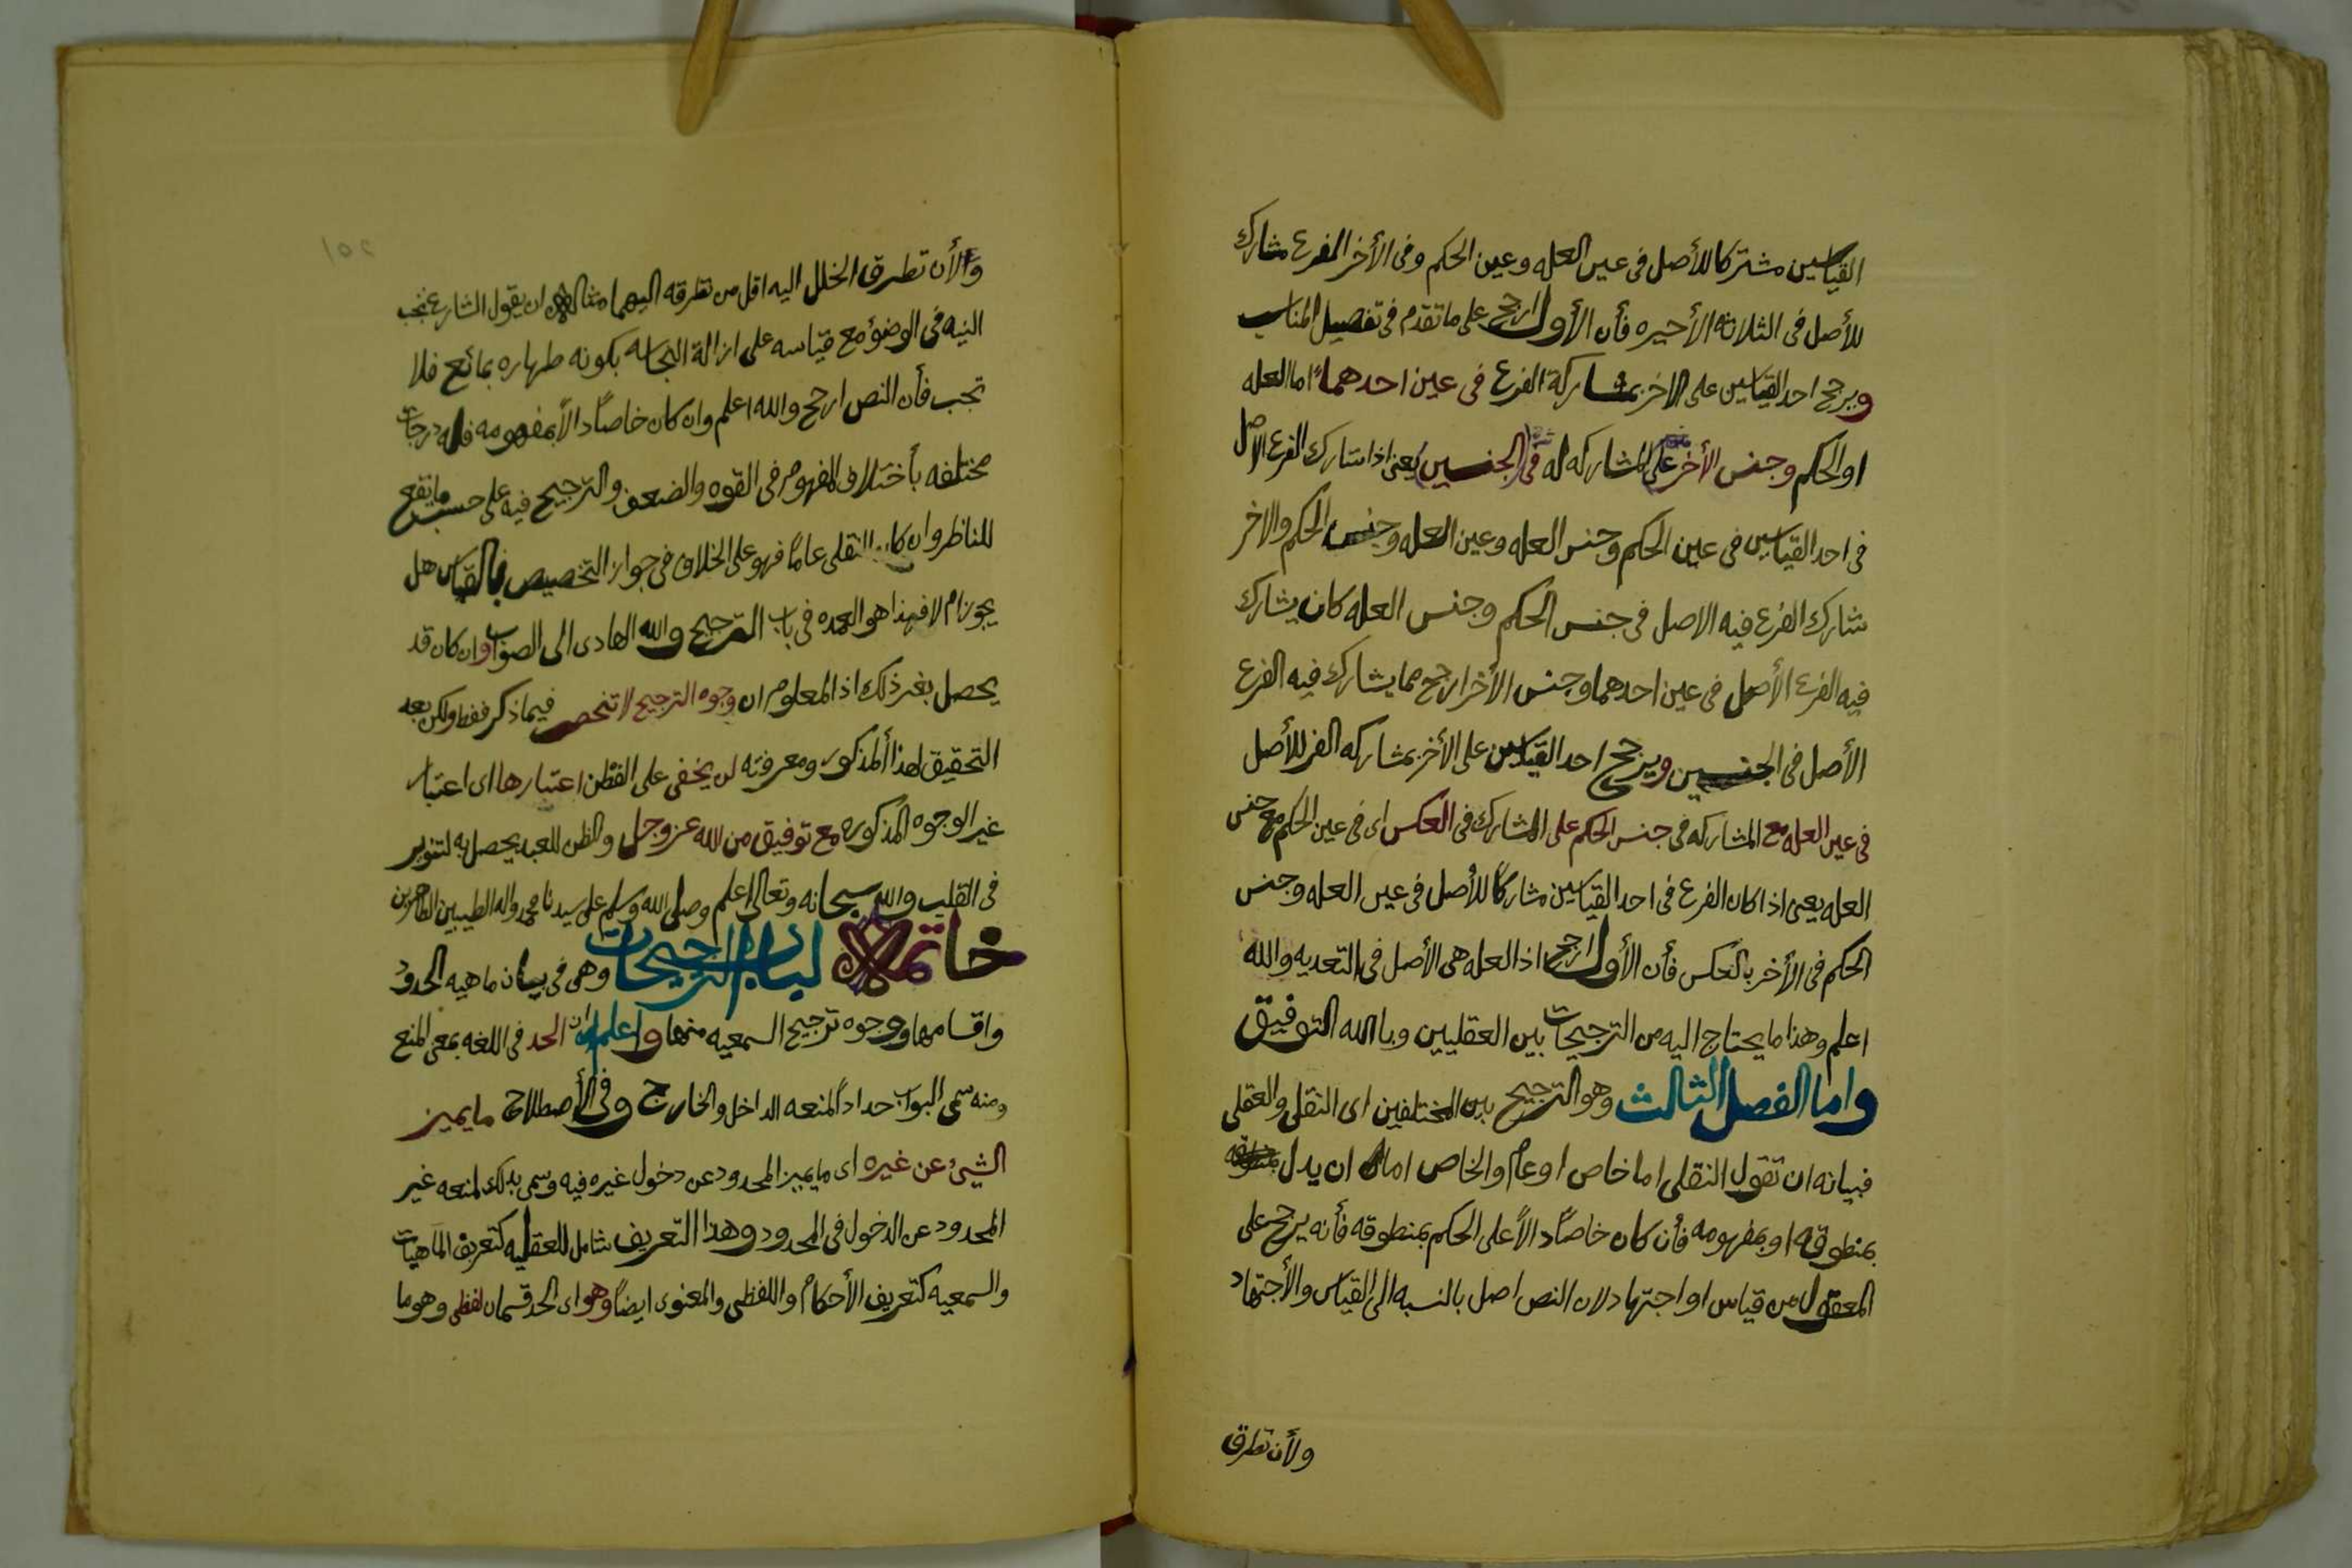 القياسين مشتركا للأصل فى عين العله وعين الحكم وفى الأخر الفرع مشارك
للأصل فى الثلاثه الأخيره فأن الأول ارجح على ما تقدم فى تفصيل المناسب
ويرجح احد القياسين على الاخر بمشاركة الفرع فى عين احدهما اما العله
او الحكم وجنس الأخر على المشاركه له فى الجنسين يعنى اذا شارك الفرع الاصل
فى احد القياسين فى عين الحكم وجنس العله وعين العله وجنس الحكم والاخر
شارك الفرع فيه الاصل فى جنس الحكم وجنس العله كان يشارك
فيه الفرع الأصل فى عين احدهما وجنس الأخر ارجح مما يشارك فيه الفرع
الأصل فى الجنسين ويرجح احد القياسين على الأخر بمشاركه الفر للأصل
فى عين العله مع المشاركه فى جنس الحكم على المشارك فى العكس اى فى عين الحكم مع جنس
العله يعنى اذا كان الفرع فى احد القياسين مشاركًا للأصل فى عين العله وجنس
الحكم فى الأخر بالعكس فأن الأول ارجح اذ العله هى الأصل فى التعديه والله
اعلم وهذا ما يحتاج اليه من الترجيحات بين العقليين وبا الله التوفيق
واما الفصل الثالث وهو الترجيح بين المختلفين اى النقلى والعقلى
فبيانه ان تقول النقلى اما خاص او عام والخاص اما ان يدل
بمنطوقه او بمفهومه فأن كان خاصًا دالاً على الحكم بمنطوقه فأنه يرجح على
المعقول من قياس او اجتهاد لان النص اصل بالنسبه الى القياس والأجتهاد
ولأن تطرق
ولأن تطرق الخلل اليه اقل من تطرقه اليهما مثاله ان يقول الشارع تجب
النيه فى الوضؤ مع قياسه على ازالة النجاسه بكونه طهاره بمائع فلا
تجب فأن النص ارجح والله اعلم وان كان خاصاً دالاً بمفهومه فله درجات
مختلفه بأختلاف المفهوم فى القوه والضعف والترجيح فيه على حسب ما يقع
للناظر وان كان النقلى عامًا فهو على الخلاف فى جواز التخصيص بالقياس هل
يجوز ام لا فهذا هو العمده فى باب الترجيح والله الهادى الى الصواب وان كان قد
يحصل بغير ذلك اذ المعلوم ان وجوه الترجيح لا تنحصر فيما ذكر فقط ولكن بعد
التحقيق لهذا المذكور ومعرفته لن يخفى على الفطن اعتبارها اى اعتبار
غير الوجوه المذكوره مع توفيق من الله عز وجل والظن للعبد يحصل به لتنوير
فى القلب والله سبحانه وتعالى اعلم وصلى الله وسلم على سيدنا محمد واله الطيبين الطاهرين
خاتمة لباب الترجيحات وهى فى بيان ماهيه الحدود
واقسامها ووجوه ترجيح السمعيه منها واعلم ان الحد فى اللغه بمعنى المنع
ومنه سمى البواب حداداً لمنعه الداخل والخارج وفى الأصطلاح ما يميز
الشيئ عن غيره اى ما يميز المحدود عن دخول غيره فيه وسمى بذلك لمنعه غير
المحدود عن الدخول فى المحدود وهذا التعريف شامل للعقليه كتعريف الماهيات
والسمعيه كتعريف الأحكام واللفظى والمعنوى ايضاً وهو اى الحد قسمان لفظى وهو ما